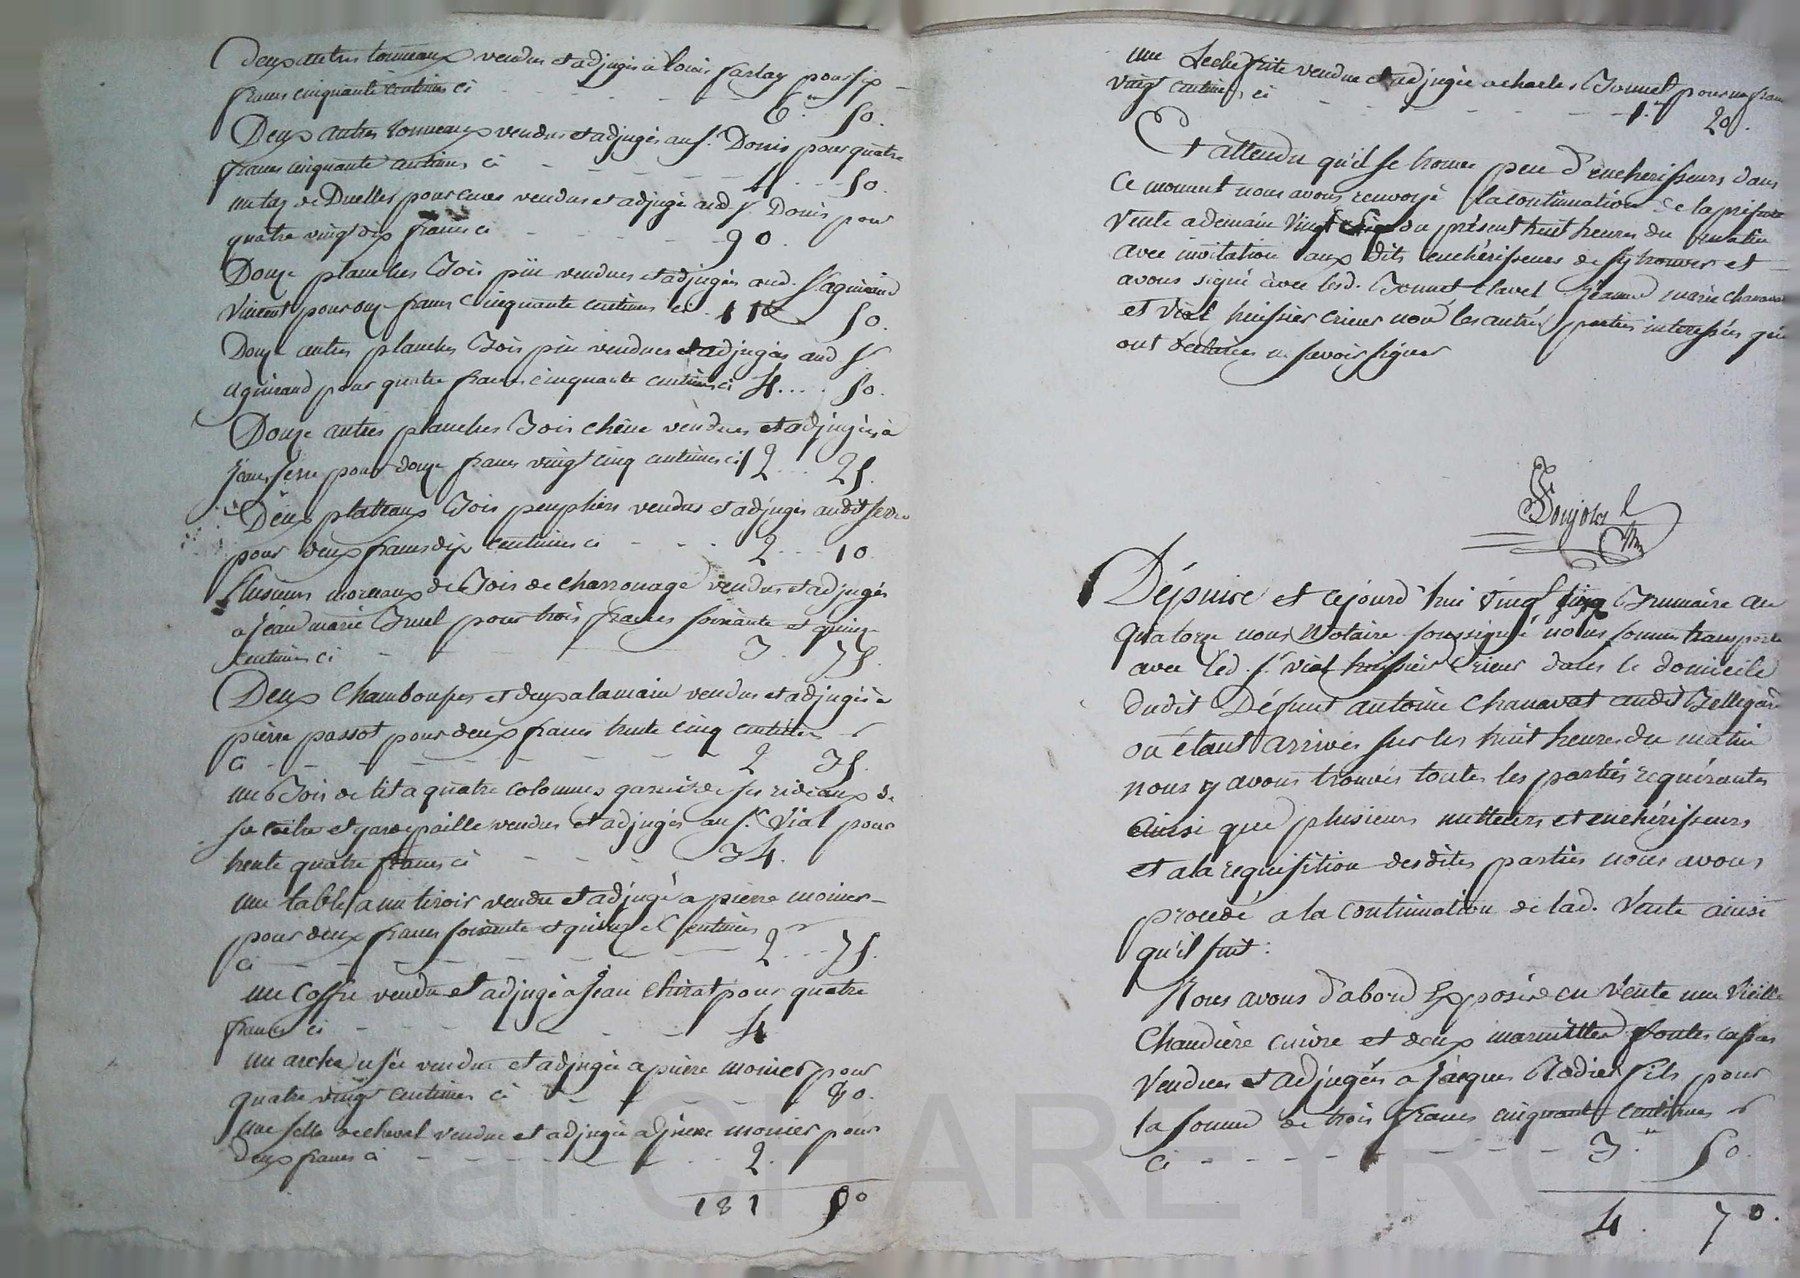 Deux autres tonneaux vendus et adjugés à louis farlay pour six
francs cinquante centimes ci - - - 6 " 50.
Deux autres tonneaux vendus et adjugés au s.r Donis pour quatre
francs cinquante centimes ci - - - 4 - - 50.
un tas de Duelles pour cuves vendus et adjugé aud. s.r Donis pour
quatre vingt dix francs ci - - - 90.
Douze planches Bois pin vendues et adjugés aud. s.r aguiraud
Vincent pour onze francs Cinquante centimes ci . 11 50.
Douze autres planches Bois pin vendues et adjugées aud s.r
aguiraud pour quatre francs cinquante centimes ci 4 .... 50.
Douze autres planches Bois chêne vendues et adjugées à
jean serre pour douze francs vingt cinq centimes ci 12 ... 25.
Deux platteaux Bois peupliers vendus et adjugés audit serre
pour deux francs dix centimes ci - - - 2 ... 10.
Plusieurs morceaux de Bois de charronage vendus et adjugés
a jean marie Brunel pour trois francs soixante et quinze
centimes ci - - - 3 . 75.
Deux et deux alamain vendus et adjugés à
pierre passot pour deux francs trente cinq centimes
ci - - - 2 35.
un Bois de lit a quatre colonnes garni de ses rideaux de
sa toile et garde paille vendus et adjugés au s.r Vial pour
trente quatre francs ci - - - 34.
une table a un tiroir vendue et adjugé a pierre monier -
pour deux francs soixante et quinze Centimes
ci - - - 2 ... 75.
un Coffre vendu et adjugé a jean chirat pour quatre
francs ci - - - 4
un arche usée vendue et adjugée a pierre monier pour
quatre vingt centimes ci - - - 80.
une selle de cheval vendue et adjugée a pierre monier pour
deux francs ci - - - 2.
181 50
une Lechefrite vendue et adjugée a charles Bonnet pour un franc
vingt centimes, ci - - - 1." 20.
Et attendu qu'il se trouve peu d'encherisseurs dans
Ce moment nous avons renvoyé la continuation de la présente
Vente a demain Vingt cinq du présent huit heures du matin
avec invitation aux dits enchérisseurs de s'y trouver et -
avons signé avec lesd. Bonnet Clavel Jeanne marie chanavat
et vial huissier crieur non les autres parties interessées qui
ont declarées ne savoir signer
Dépuise et cejourd'hui vingt cinq Brumaire an
quatorze nous Notaire soussigné nous sommes transporté
avec led. s.r vial huissier Crieur dans le domicile
dudit Défunt antoine Chanavat audit Bellegarde
où étant arrivés sur les huit heures du matin
nous y avons trouvés toutes les parties requérantes
ainsi que plusieurs metteurs et enchérisseurs
et a la requisition desdites parties nous avons
procedé a la continuation de lad. Vente ainsi
qu'il suit :
Nous avons d'abord Exposé en Vente une Vieille
Chaudière cuivre et deux marmittes fontes cassées
Vendues et adjugés a jacques Rodier fils pour
la somme de trois francs cinquante centimes
ci - - - 3." 50.
4. 70.
al CHAREYRON